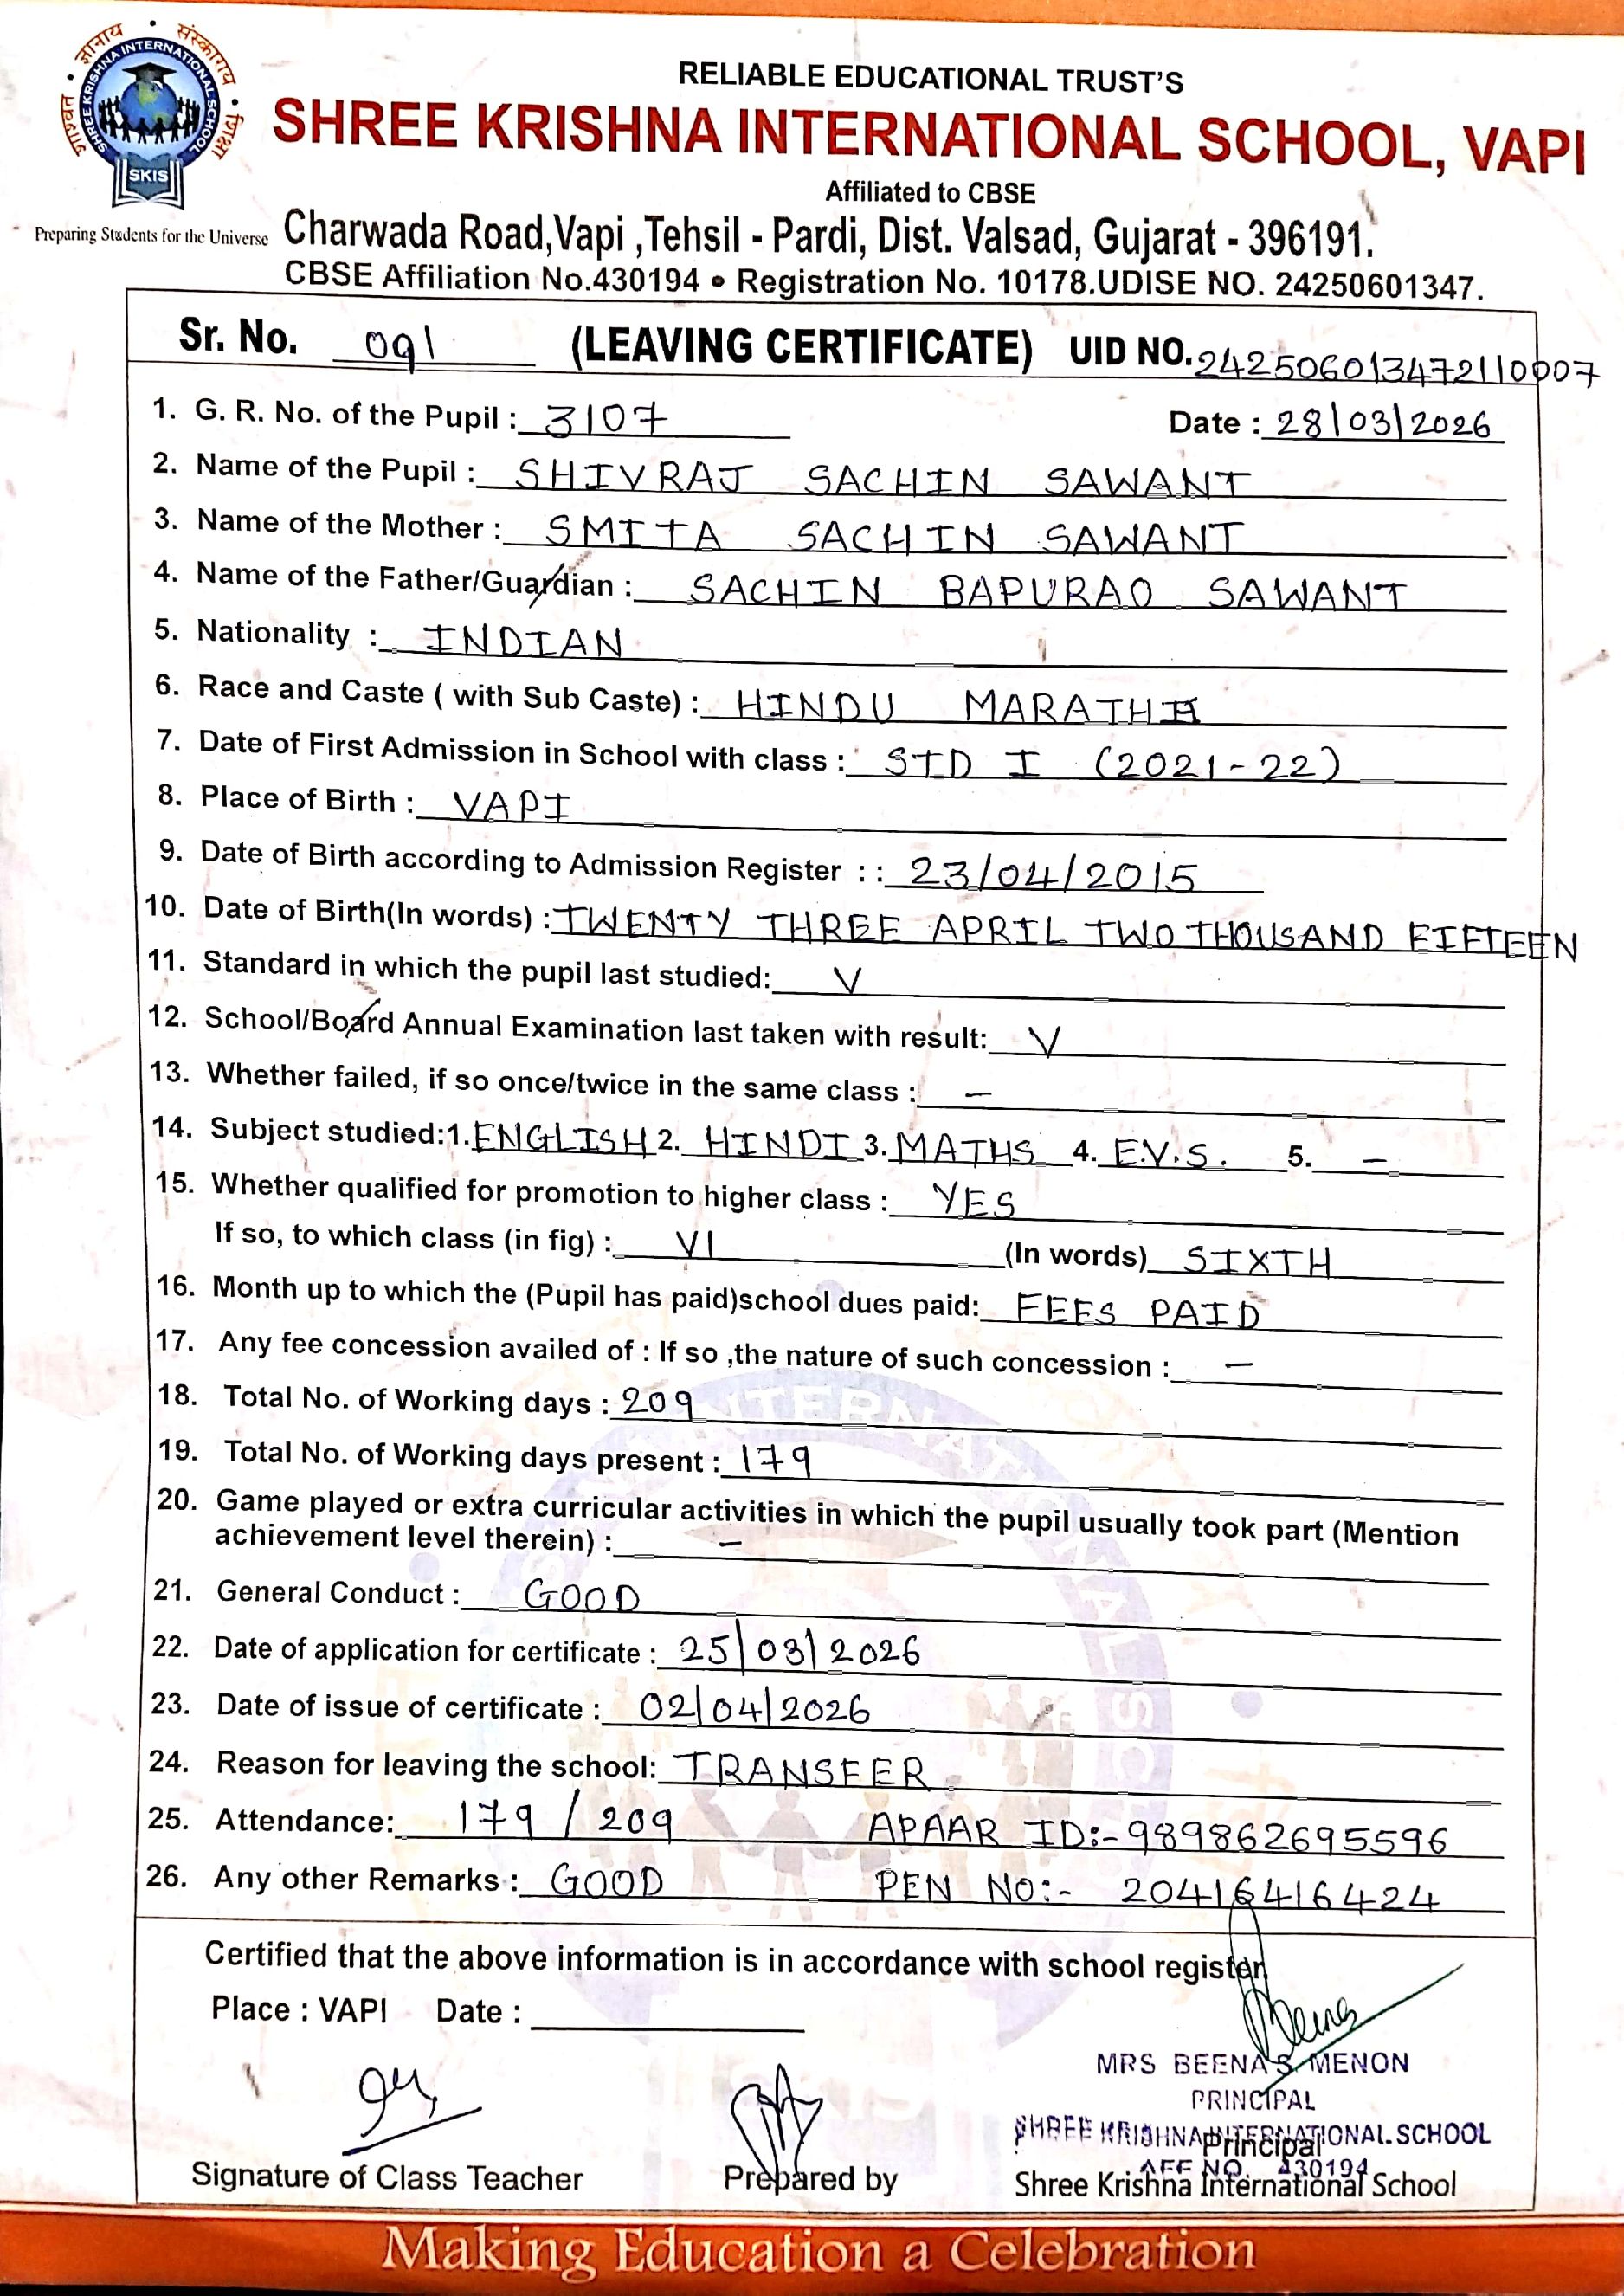 ज्ञानाय संस्काराय
SHREE KRISHNA INTERNATIONAL SCHOOL
SKIS
Preparing Students for the Universe
RELIABLE EDUCATIONAL TRUST'S
SHREE KRISHNA INTERNATIONAL SCHOOL, VAPI
Affiliated to CBSE
Charwada Road,Vapi ,Tehsil - Pardi, Dist. Valsad, Gujarat - 396191.
CBSE Affiliation No.430194 • Registration No. 10178.UDISE NO. 24250601347.
Sr. No. 091 (LEAVING CERTIFICATE) UID NO. 242506013472110007
1. G. R. No. of the Pupil : 3107 Date : 28/03/2026
2. Name of the Pupil : SHIVRAJ SACHIN SAWANT
3. Name of the Mother : SMITA SACHIN SAWANT
4. Name of the Father/Guardian : SACHIN BAPURAO SAWANT
5. Nationality : INDIAN
6. Race and Caste ( with Sub Caste) : HINDU
7. Date of First Admission in School with class : STD I (2021-22)
8. Place of Birth : VAPI
9. Date of Birth according to Admission Register : : 23/04/2015
10. Date of Birth(In words) : TWENTY THREE APRIL TWO THOUSAND FIFTEEN
11. Standard in which the pupil last studied: V
12. School/Board Annual Examination last taken with result: V
13. Whether failed, if so once/twice in the same class : –
14. Subject studied:1. ENGLISH 2. HINDI 3. MATHS 4. E.V.S. 5. –
15. Whether qualified for promotion to higher class : YES
If so, to which class (in fig) : VI (In words) SIXTH
16. Month up to which the (Pupil has paid)school dues paid: FEES PAID
17. Any fee concession availed of : If so ,the nature of such concession : –
18. Total No. of Working days : 209
19. Total No. of Working days present : 179
20. Game played or extra curricular activities in which the pupil usually took part (Mention
achievement level therein) : –
21. General Conduct : GOOD
22. Date of application for certificate : 25/03/2026
23. Date of issue of certificate : 02/04/2026
24. Reason for leaving the school: TRANSFER
25. Attendance: 179 / 209 APAAR ID:- 989862695596
26. Any other Remarks : GOOD PEN NO:- 20416416424
Certified that the above information is in accordance with school register
Place : VAPI Date :
MRS BEENA S MENON
PRINCIPAL
SHREE KRISHNA INTERNATIONAL SCHOOL
Principal
AFF NO. 430194
Signature of Class Teacher Prepared by Shree Krishna International School
Making Education a Celebration